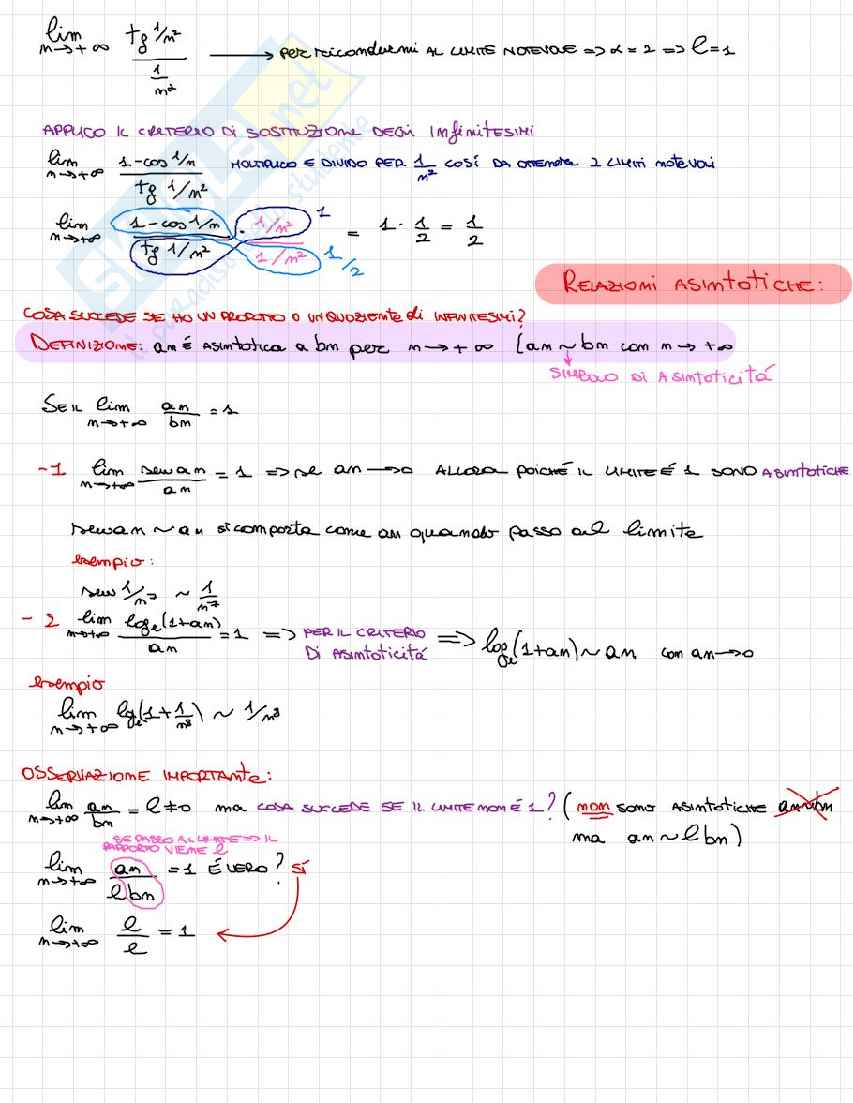 lim n→+∞ tg 1/n² / 1/n² → PER RICONDURMI AL LIMITE NOTEVOLE => α = 2 => l = 1
APPLICO IL CRITERIO DI SOSTITUZIONE DEGLI INFINITESIMI
lim n→+∞ 1-cos 1/n / tg 1/n² MOLTIPLICO E DIVIDO PER 1/n² COSÍ DA OTTENERE 2 LIMITI NOTEVOLI
lim n→+∞ 1-cos 1/n / tg 1/n² · 1/n² / 1/n² 1 1/2 = 1 · 1/2 = 1/2
RELAZIONI ASINTOTICHE:
COSA SUCCEDE SE HO UN PRODOTTO O UN QUOZIENTE di INFINITESIMI?
DEFINIZIONE: an É ASINTOTICA a bn per n→+∞ (an ~ bn con n→+∞
SIMBOLO DI ASINTOTICITÁ
SE IL lim n→+∞ an/bn = 1
-1 lim n→+∞ sen an / an = 1 => se an → 0 ALLORA POICHÉ IL LIMITE É 1 SONO ASINTOTICHE
sen an ~ an si comporta come an quando passo al limite
esempio:
sen 1/n⁷ ~ 1/n⁷
-2 lim n→+∞ logₑ(1+an) / an = 1 => PER IL CRITERIO DI ASINTOTICITÁ => logₑ(1+an) ~ an con an→0
esempio
lim n→+∞ lgₑ(1+1/n³) ~ 1/n³
OSSERVAZIONE IMPORTANTE:
lim n→+∞ an/bn = l≠0 ma COSA SUCCEDE SE IL LIMITE NON É 1? (non SONO ASINTOTICHE an~bn
ma an ~ l bn)
SE PASSO AL LIMITE => IL
RAPPORTO VIENE l
lim n→+∞ an / l bn = 1 É VERO? SÍ
lim n→+∞ l/l = 1